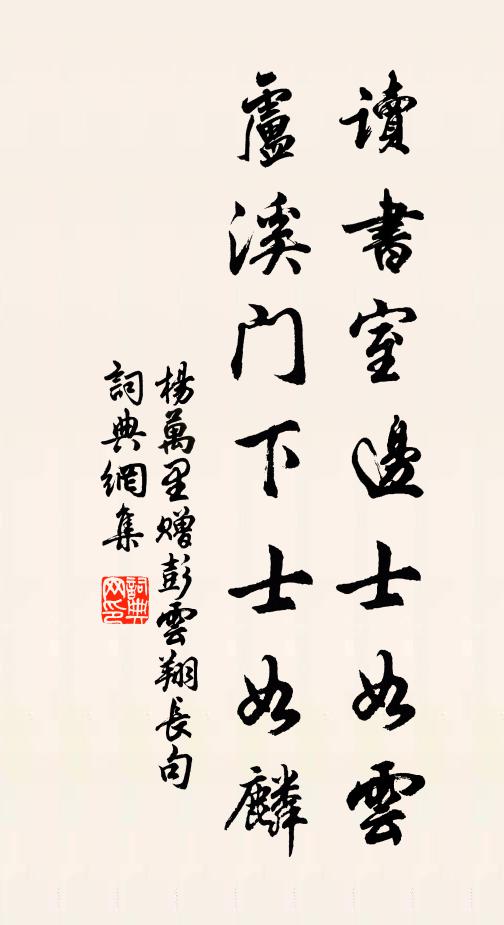 讀書室邊士如雲
盧溪門下士如麟
楊萬里贈彭雲翔長句
詞典網集
詞典
网印